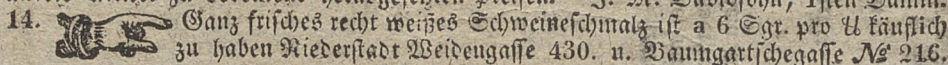 14. Ganz frisches recht weißes Schweineschmalz ist a 6 Sgr. pro ℔ käuflich
zu haben Niederstadt Weidengasse 430. u. Baumgartschegasse № 216.